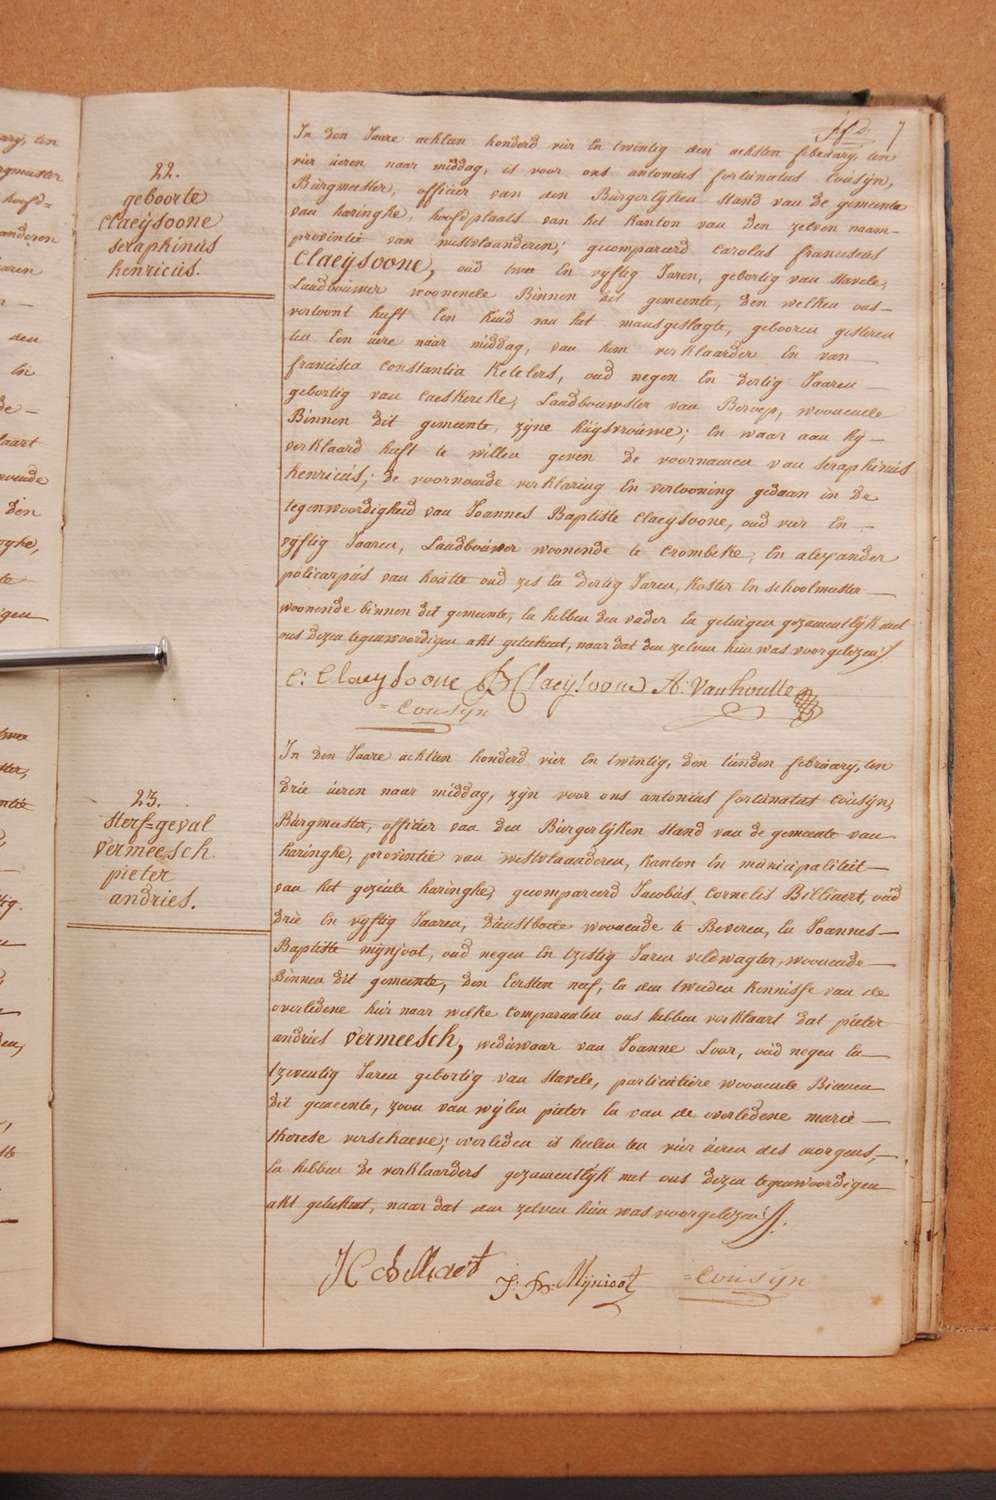 7
22.
geboorte
Claeÿsoone
seraphinus
henricus.
In den Jaare achtien honderd vier En twintig den achsten februarÿ, ten
vier üeren naar middag, is voor ons antonius fortunatus Cousÿn,
Burgmeester, officier van den Burgerlÿken stand van de gemeente
van haringhe, hoofdplaats van het kanton van den zelven naam-
provintie van westvlaanderen; gecompareerd Carolus franciscus
Claeÿsoone, oud twee En vÿftig Jaren, gebortig van Stavele,
Landbouwer woonende Binnen dit gemeente, den welken ons-
vertoont heeft Een Kind van het mansgeslagte, gebooren gisteren
ten Een üere naar middag, van hem verklaarder En van
francisca Constantia Ketelers, oud negen En dertig Jaaren
gebortig van Caeskercke, Landbouwster van Beroep, woonende
Binnen dit gemeente, zÿne huÿsvrouwe; En waar aan hÿ-
verklaard heeft te willen geven de voornamen van seraphinus
henricus; de voornoemde verklaring En vertooning gedaan in de
tegenwoordigheid van Joannes Baptiste Claeÿsoone, oud vier En-
vÿftig Jaaren, Landbouwer woonende te Crombeke, En alexander
policarpus van houtte oud zes En dertig Jaren, Koster En schoolmeester
woonende binnen dit gemeente, En hebben den vader En getuigen gezamentlÿk met
ons dezen tegenwoordigen akt geteekent, naar dat den zelven hun was voorgelezen;/
C: Claeysoone JB Claeysoone A: Vanhoutte
= Cousÿn
23.
Sterf=geval
vermeesch
pieter
andries.
In den Jaare achtien honderd vier En twintig, den tienden februarÿ, ten
drie üeren naar middag, zÿn voor ons antonius fortunatus Cousÿn,
Burgmeester, officier van den Burgerlÿken stand van de gemeente van
haringhe, provintie van westvlaanderen, kanton En municipaliteit
van het gezeide haringhe, gecompareerd Jacobus Cornelis Billiaert, oud
drie En vÿftig Jaaren, dienstbode woonende te Beveren, En Joannes-
Baptiste mÿnjoot, oud negen En tzestig Jaren veldwagter, woonende
Binnen dit gemeente, den Eersten neef, En den tweeden kennisse van de
overledene hier naar welke Comparanten ons hebben verklaart dat pieter
andries vermeesch, weduwaar van Joanne Loor, oud negen En
tzeventig Jaren gebortig van Stavele, particuliere woonende Binnen
dit gemeente, zoon van wÿlen pieter En van de overledene marie
therese verschaeve; overleden is heden ten vier üeren des morgens,
En hebben de verklaarders gezamentlÿk met ons dezen tegenwoordigen
akt geteekent, naar dat den zelven hun was voorgelezen;/.
J C Billiaert J: B: Mÿnioot = Cousÿn